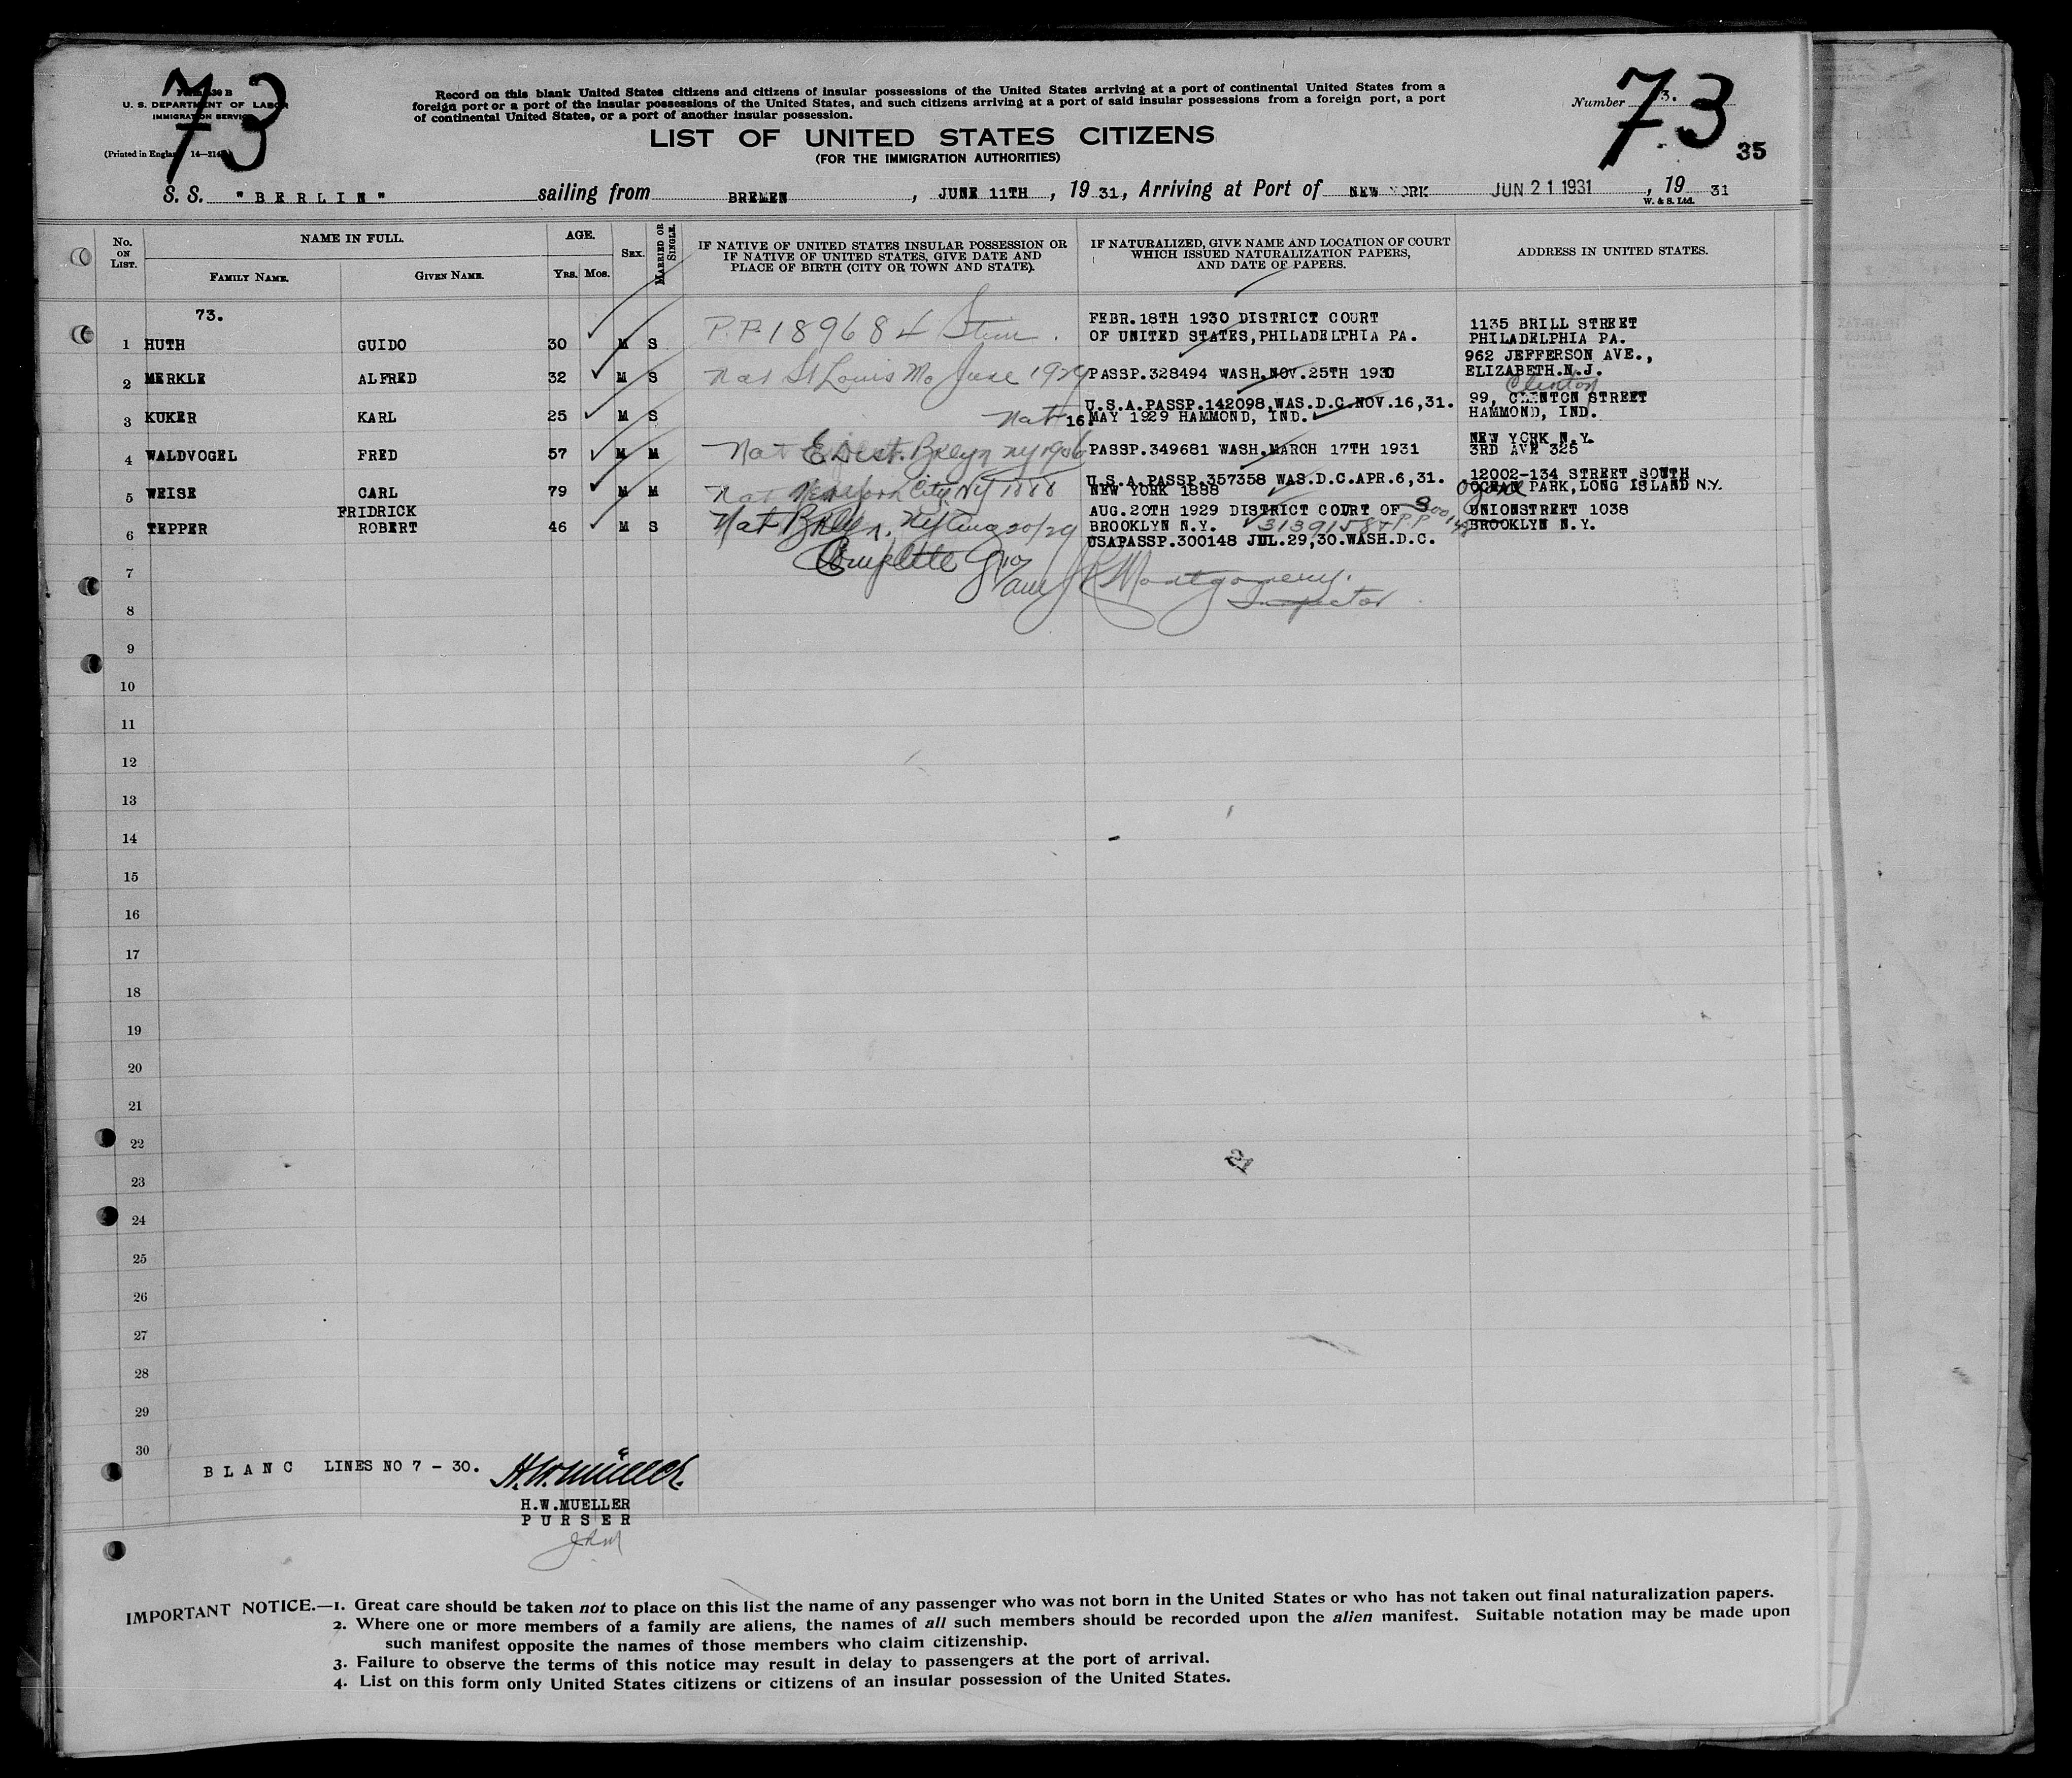 73
73
Form 630 B
U. S. DEPARTMENT OF LABOR
IMMIGRATION SERVICE
(Printed in England 14—
Record on this blank United States citizens and citizens of insular possessions of the United States arriving at a port of continental United States from a
foreign port or a port of the insular possessions of the United States, and such citizens arriving at a port of said insular possessions from a foreign port, a port
of continental United States, or a port of another insular possession.
Number 73.
35
LIST OF UNITED STATES CITIZENS
(FOR THE IMMIGRATION AUTHORITIES)
S. S. "BERLIN" sailing from BREMEN, JUNE 11TH, 19 31, Arriving at Port of NEW YORK JUN 21 1931, 19 31
W. & S. Ltd.
No. ON LIST.
NAME IN FULL.
FAMILY NAME.
GIVEN NAME.
AGE.
YRS. MOS.
SEX.
MARRIED OR SINGLE.
IF NATIVE OF UNITED STATES INSULAR POSSESSION OR
IF NATIVE OF UNITED STATES, GIVE DATE AND
PLACE OF BIRTH (CITY OR TOWN AND STATE).
IF NATURALIZED, GIVE NAME AND LOCATION OF COURT
WHICH ISSUED NATURALIZATION PAPERS,
AND DATE OF PAPERS.
ADDRESS IN UNITED STATES.
73.
1 HUTH GUIDO 30 M S P.P. 189684
FEBR.18TH 1930 DISTRICT COURT
OF UNITED STATES, PHILADELPHIA PA.
1135 BRILL STREET
PHILADELPHIA PA.
2 MERKLE ALFRED 32 M S Nat St Louis Mo June 1929 PASSP.328494 WASH.NOV.25TH 1930
962 JEFFERSON AVE.,
ELIZABETH.N.J.
3 KUKER KARL 25 M S Nat
U.S.A.PASSP.142098,WAS.D.C.NOV.16,31.
16. MAY 1929 HAMMOND, IND.
Clinton
99, CLINTON STREET
HAMMOND, IND.
4 WALDVOGEL FRED 57 M M Nat E Dist. Bklyn NY 1906 PASSP.349681 WASH.MARCH 17TH 1931
NEW YORK N.Y.
3RD AVE 325
5 WEISE CARL 79 M M Nat City NY 1888
U.S.A.PASSP.357358 WAS.D.C.APR.6,31.
NEW YORK 1888
12002-134 STREET SOUTH
Ozone OCEAN PARK, LONG ISLAND N.Y.
6 TEPPER FRIDRICK ROBERT 46 M S Nat Bklyn. 20/29
AUG.20TH 1929 DISTRICT COURT OF
BROOKLYN N.Y. 3139158 P.P. 300148
USAPASSP.300148 JUL.29,30.WASH.D.C.
UNIONSTREET 1038
BROOKLYN N.Y.
Complete
Montgomery.
Inspector
7
8
9
10
11
12
13
14
15
16
17
18
19
20
21
22
23
24
25
26
27
28
29
30
BLANC LINES NO 7 - 30.
H.W. Müller
H.W.MUELLER
PURSER
JRM
IMPORTANT NOTICE.—1. Great care should be taken not to place on this list the name of any passenger who was not born in the United States or who has not taken out final naturalization papers.
2. Where one or more members of a family are aliens, the names of all such members should be recorded upon the alien manifest. Suitable notation may be made upon
such manifest opposite the names of those members who claim citizenship.
3. Failure to observe the terms of this notice may result in delay to passengers at the port of arrival.
4. List on this form only United States citizens or citizens of an insular possession of the United States.